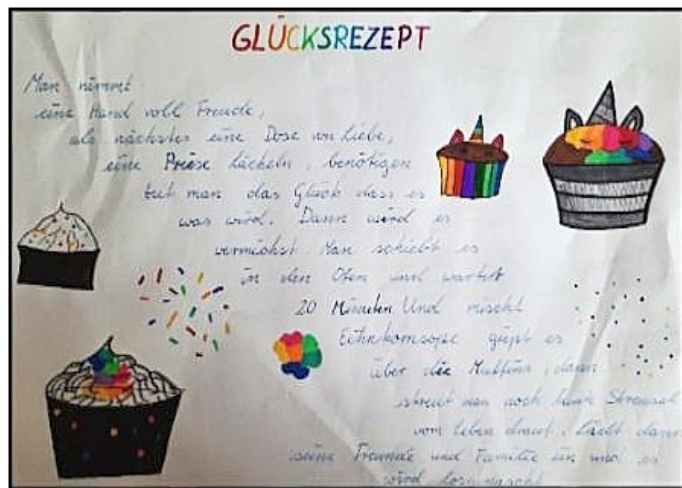 GLÜCKSREZEPT
Man nimmt
eine Hand voll Freude,
als nächstes eine Dose von Liebe,
eine Priese lächeln, benötigen
tut man das Glück dass es
was wird. Dann wird es
vermischt. Man schiebt es
in den Ofen und wartet
20 Minuten Und mischt
gießt es
über die Muffins, dann
streut man noch bunte Streusel
vom leben drauf. Lädt dann
seine Freunde und Familie ein und es
wird